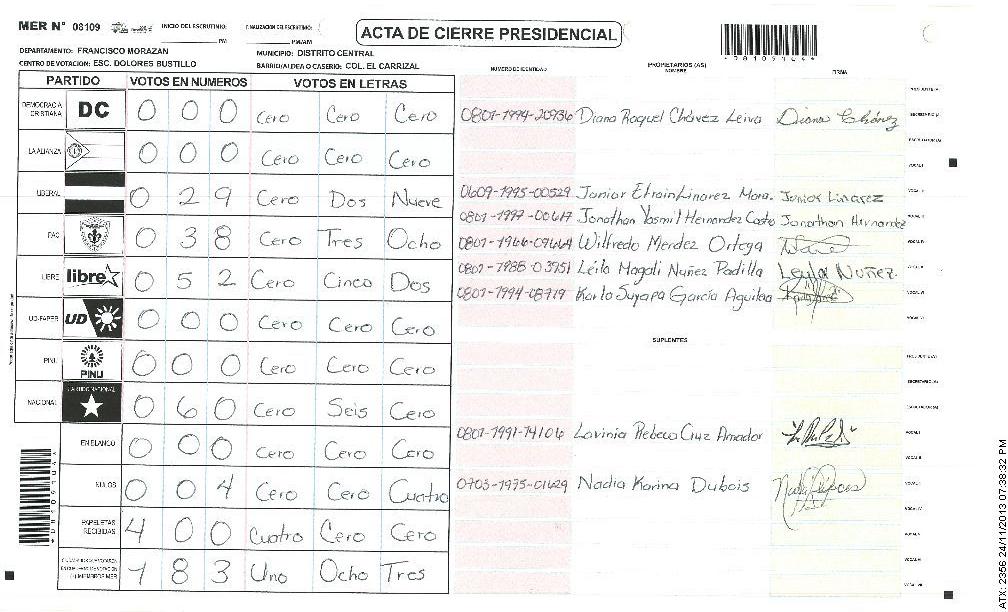 MER N° 08109
INICIO DEL ESCRUTINIO: PM
FINALIZACION DEL ESCRUTINIO: PM/AM
ACTA DE CIERRE PRESIDENCIAL
DEPARTAMENTO: FRANCISCO MORAZAN
MUNICIPIO: DISTRITO CENTRAL
CENTRO DE VOTACION: ESC. DOLORES BUSTILLO
BARRIO/ALDEA O CASERIO: COL. EL CARRIZAL
NUMERO DE IDENTIDAD PROPIETARIOS (AS) NOMBRE FIRMA
PARTIDO VOTOS EN NUMEROS VOTOS EN LETRAS
DEMOCRACIA CRISTIANA DC 0 0 0 Cero Cero Cero
LA ALIANZA 0 0 0 Cero Cero Cero
LIBERAL 0 2 9 Cero Dos Nueve
PAC 0 3 8 Cero Tres Ocho
LIBRE libre 0 5 2 Cero Cinco Dos
UD-FAPER UD 0 0 0 Cero Cero Cero
PINU PINU 0 0 0 Cero Cero Cero
NACIONAL PARTIDO NACIONAL 0 6 0 Cero Seis Cero
EN BLANCO 0 0 0 Cero Cero Cero
NULOS 0 0 4 Cero Cero Cuatro
PAPELETAS RECIBIDAS 4 0 0 Cuatro Cero Cero
1 8 3 Uno Ocho Tres
0801-1994-20936 Diana Raquel Chávez Leiva Diana Chávez
0609-1995-00529 Junior Efrain Linarez Mora. Junior Linarez
0801-1997-00617 Jonathan Yosmil Hernandez Jonathan Hernandez
Wilfredo Mendez Ortega
0801-1988-03951 Leila Magali Nuñez Padilla Leyla Nuñez
0801-1994-08719 Karla Suyapa García Aguilar
SUPLENTES
0801-1991-14106 Lavinia Rebeca Cruz Amador
0703-1975-01629 Nadia Karina Dubois
ATX: 2356 24/11/2013 07:38:32 PM